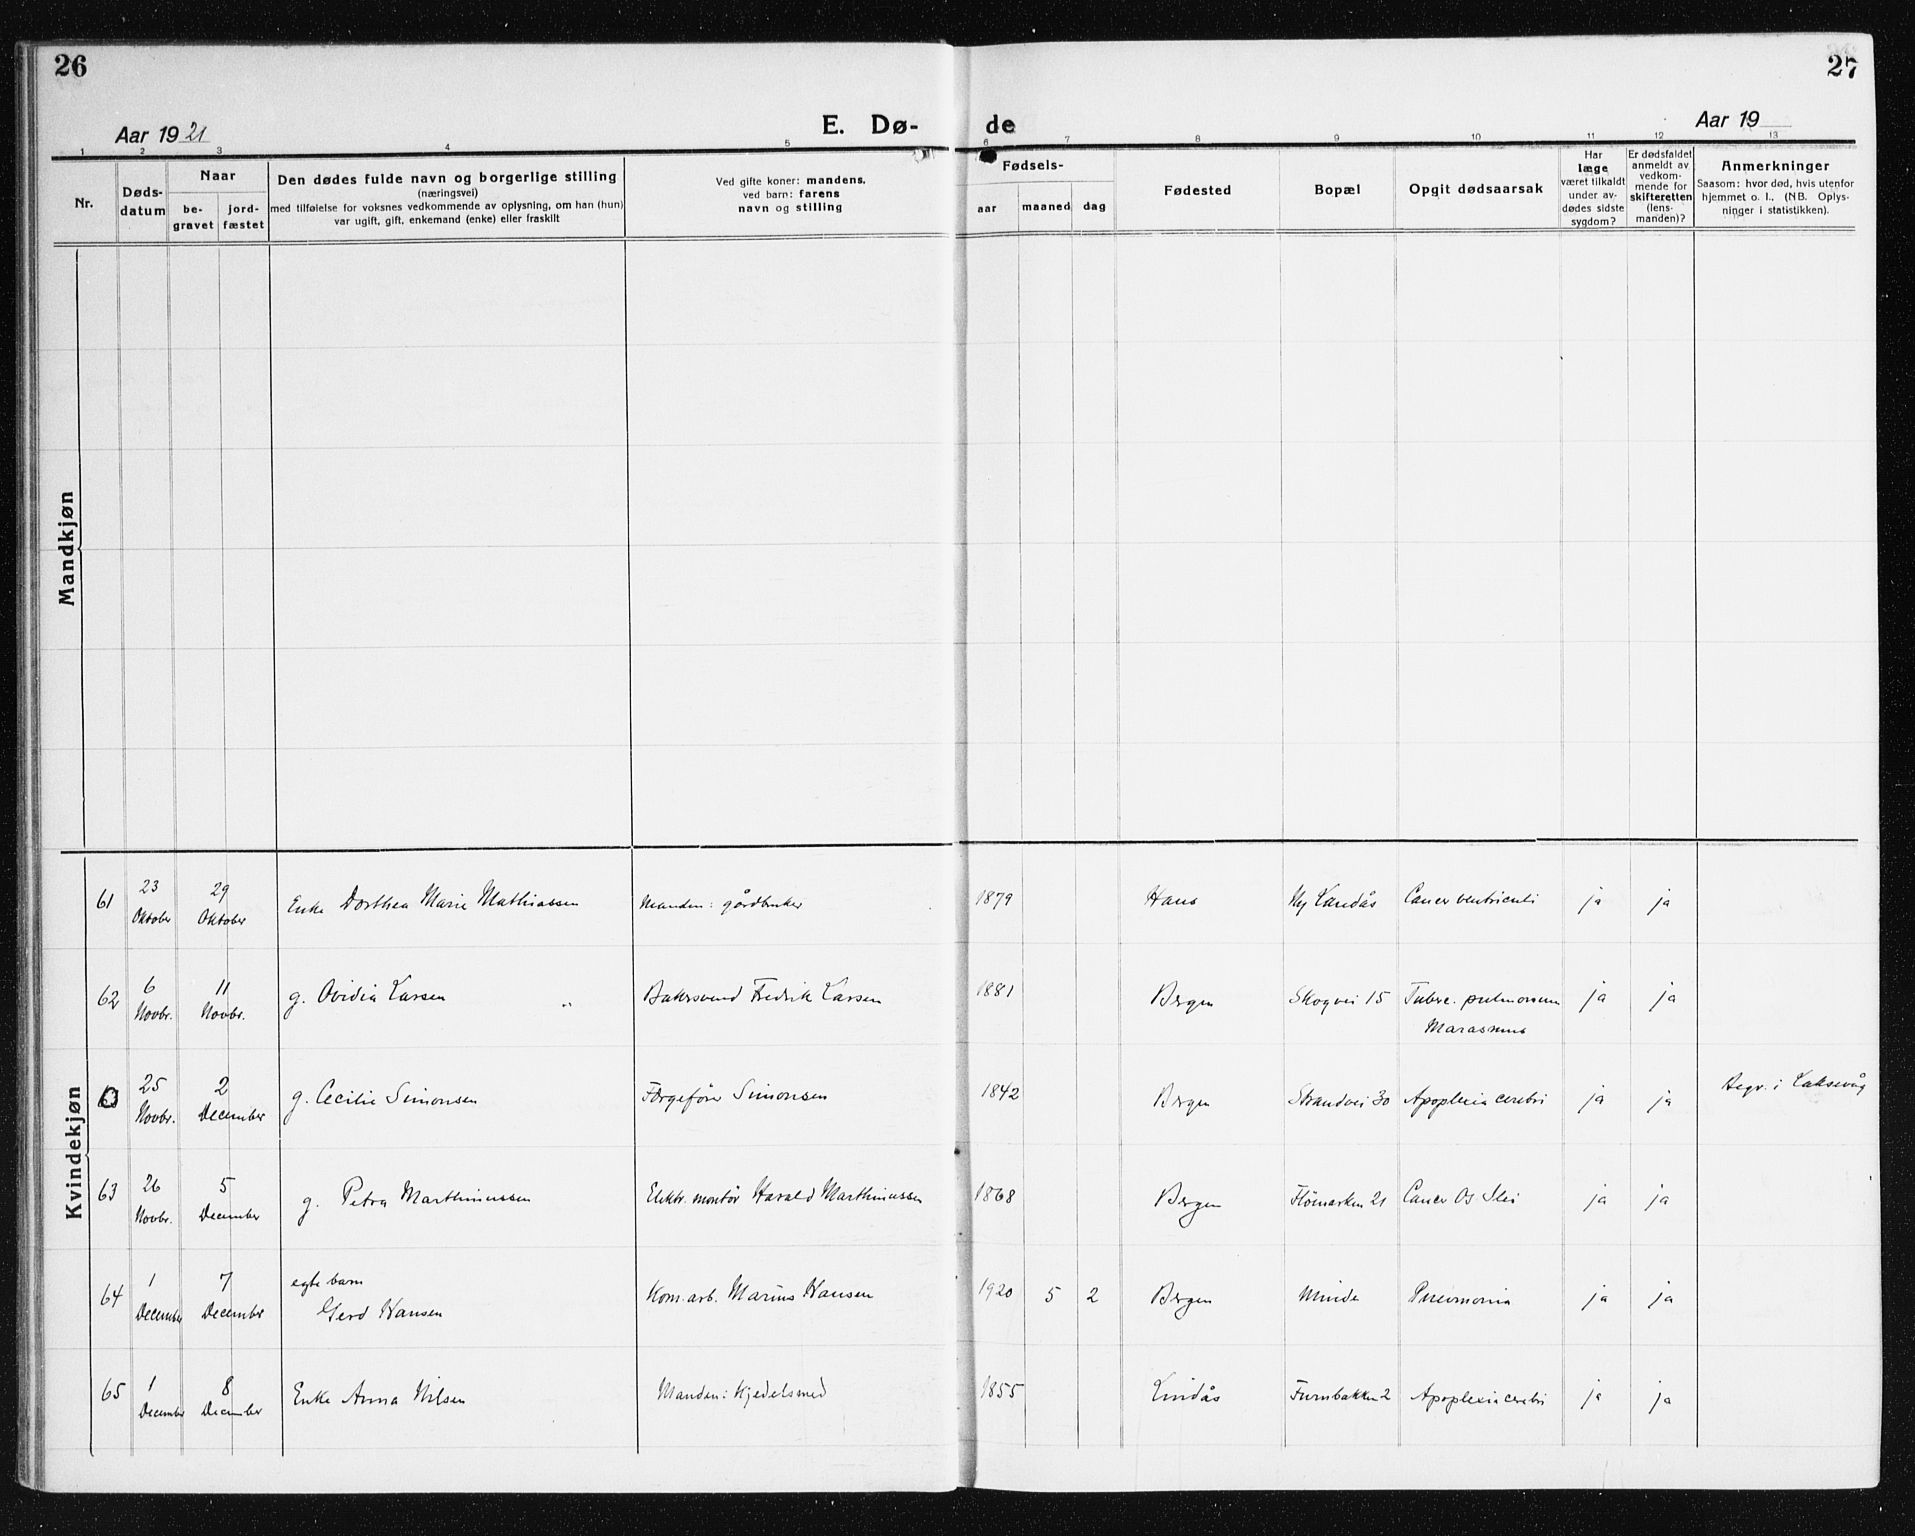 26
27
Aar 1921
E. Dø-
de
Aar 19
1 2 3 4 5 6 7 8 9 10 11 12 13
Nr.
Døds-
datum
Naar
be-
gravet
jord-
fæstet
Den dødes fulde navn og borgerlige stilling
(næringsvei)
med tilføielse for voksnes vedkommende av oplysning, om han (hun)
var ugift, gift, enkemand (enke) eller fraskilt
Ved gifte koner: mandens,
ved barn: farens
navn og stilling
Fødsels-
aar
maaned
dag
Fødested
Bopæl
Opgit dødsaarsak
Har
læge
været tilkaldt
under av-
dødes sidste
sygdom?
Er dødsfaldet
anmeldt av
vedkom-
mende for
skifteretten
(lens-
manden)?
Anmerkninger
Saasom: hvor død, hvis utenfor
hjemmet o. l., (NB. Oplys-
ninger i statistikken).
Mandkjøn
Kvindekjøn
61 23 Oktober 29 Oktober Enke Dorthea Marie Mathiassen Manden: gårdbruker 1879 Haus Ny Landås Cancer ventriculi ja ja
62 6 Novbr. 11 Novbr. g. Ovidia Larsen Bakersvend Fredrik Larsen 1881 Bergen Skogvei 15 Tuberc. pulmonum ja ja
Marasmus
0 25 Novbr. 2 December g. Cecilie Simonsen Færgefører Simonsen 1842 Bergen Strandvei 30 Apoplexia cerebri ja ja Begr. i Laksevåg
63 26 Novbr. 5 December g. Petra Marthinussen Elektr. montør Harald Marthinussen 1868 Bergen Flömarken 21 Cancer Os Ilei ja ja
64 1 December 7 December egte barn
Gerd Hansen Kom. arb. Marius Hansen 1920 5 2 Bergen Minde Pneumonia ja ja
65 1 December 8 December Enke Anna Nilsen Manden: Kjedelsmed 1855 Lindås Furubakken 2 Apoplexia cerebri ja ja